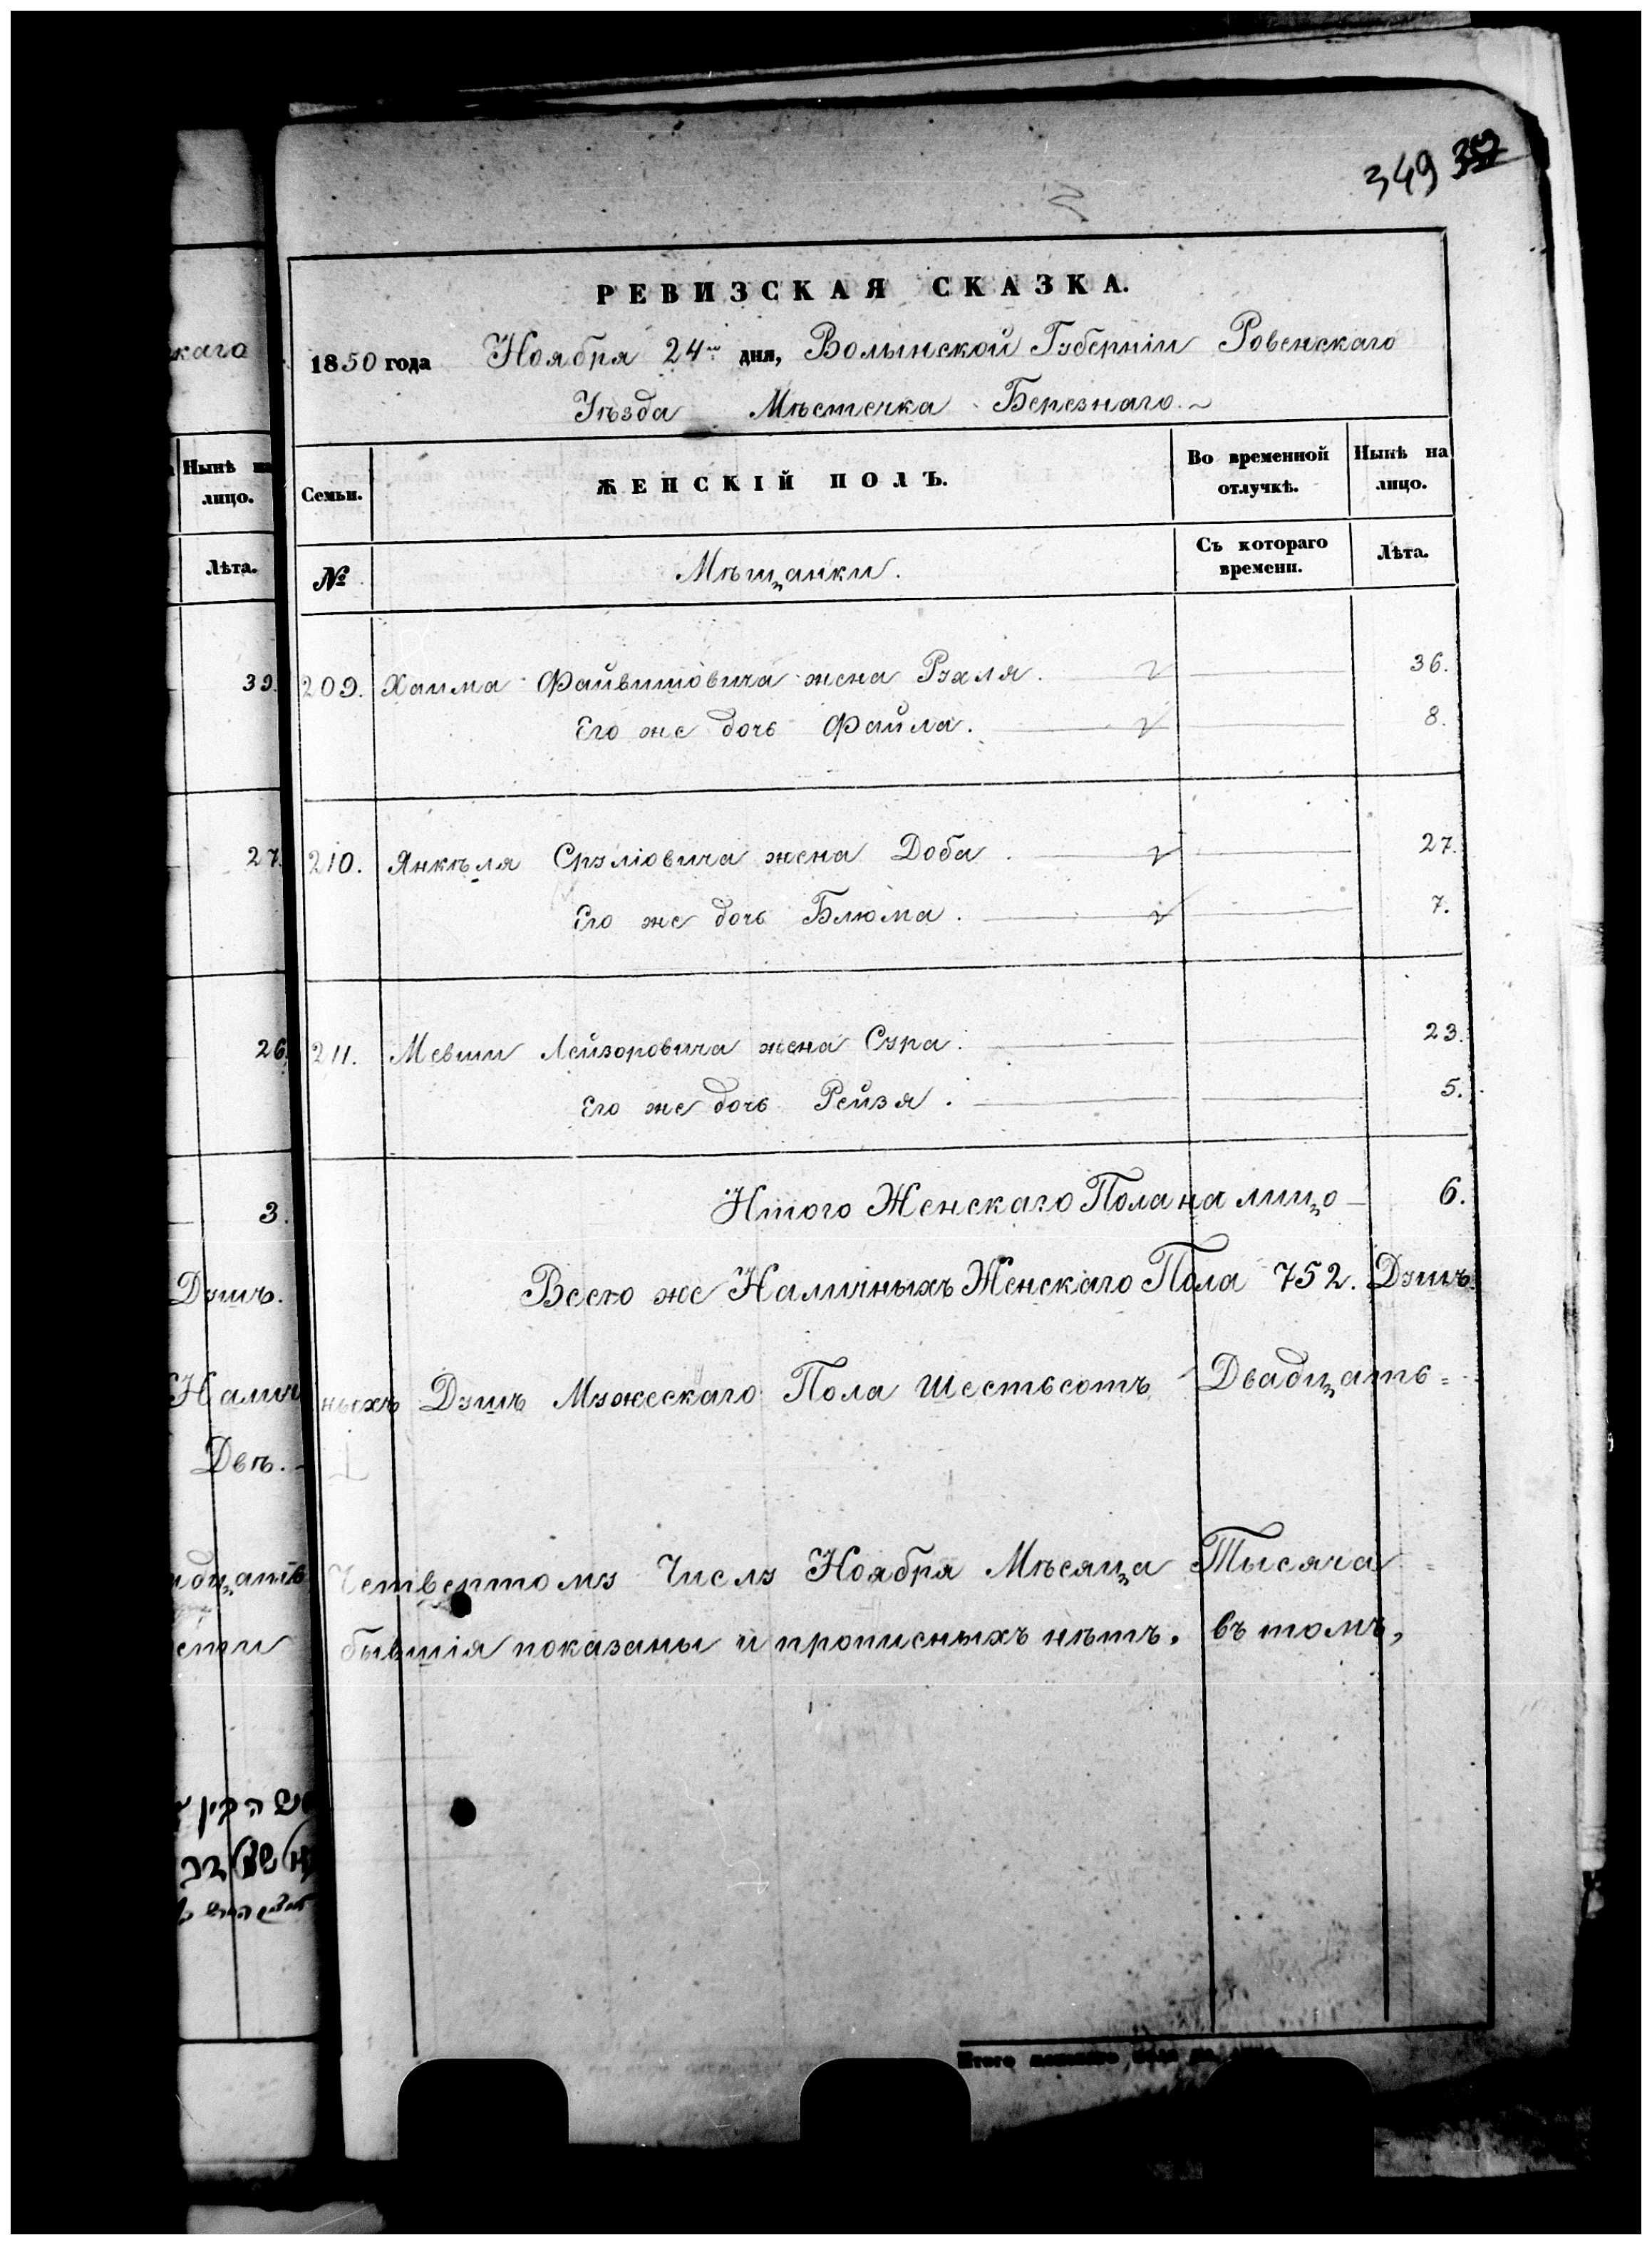 349
РЕВИЗСКАЯ СКАЗКА.
1850 года Ноября 24го дня, Волынской Губерніи Ровенскаго
Уѣзда Мѣстечка Березнаго.
Семьи. ЖЕНСКІЙ ПОЛЪ. Во временной отлучкѣ. Нынѣ на лицо.
№ Мѣщанки. Съ котораго времени. Лѣта.
209. Хаима Файвишовича жена Рухля. 36.
Его же дочь Файла. 8.
210. Янкѣля Сруліовича жена Доба. 27.
Его же дочь Блюма. 7.
211. Мевши Лейзоровича жена Сура. 23.
Его же дочь Рейзя. 5.
Итого Женскаго Пола на лицо 6.
Всего же Наличныхъ Женскаго Пола 752. Душъ.
ныхъ Душъ Мужескаго Пола Шестьсотъ Двадцать=
Четвертому Числу Ноября Мѣсяца Тысяча
бывшія показаны и прописныхъ нѣтъ. въ томъ,
каго
Нынѣ на
лицо.
Лѣта.
39.
27.
26.
3.
Душъ.
Налич
Двѣ.
дцать
сти